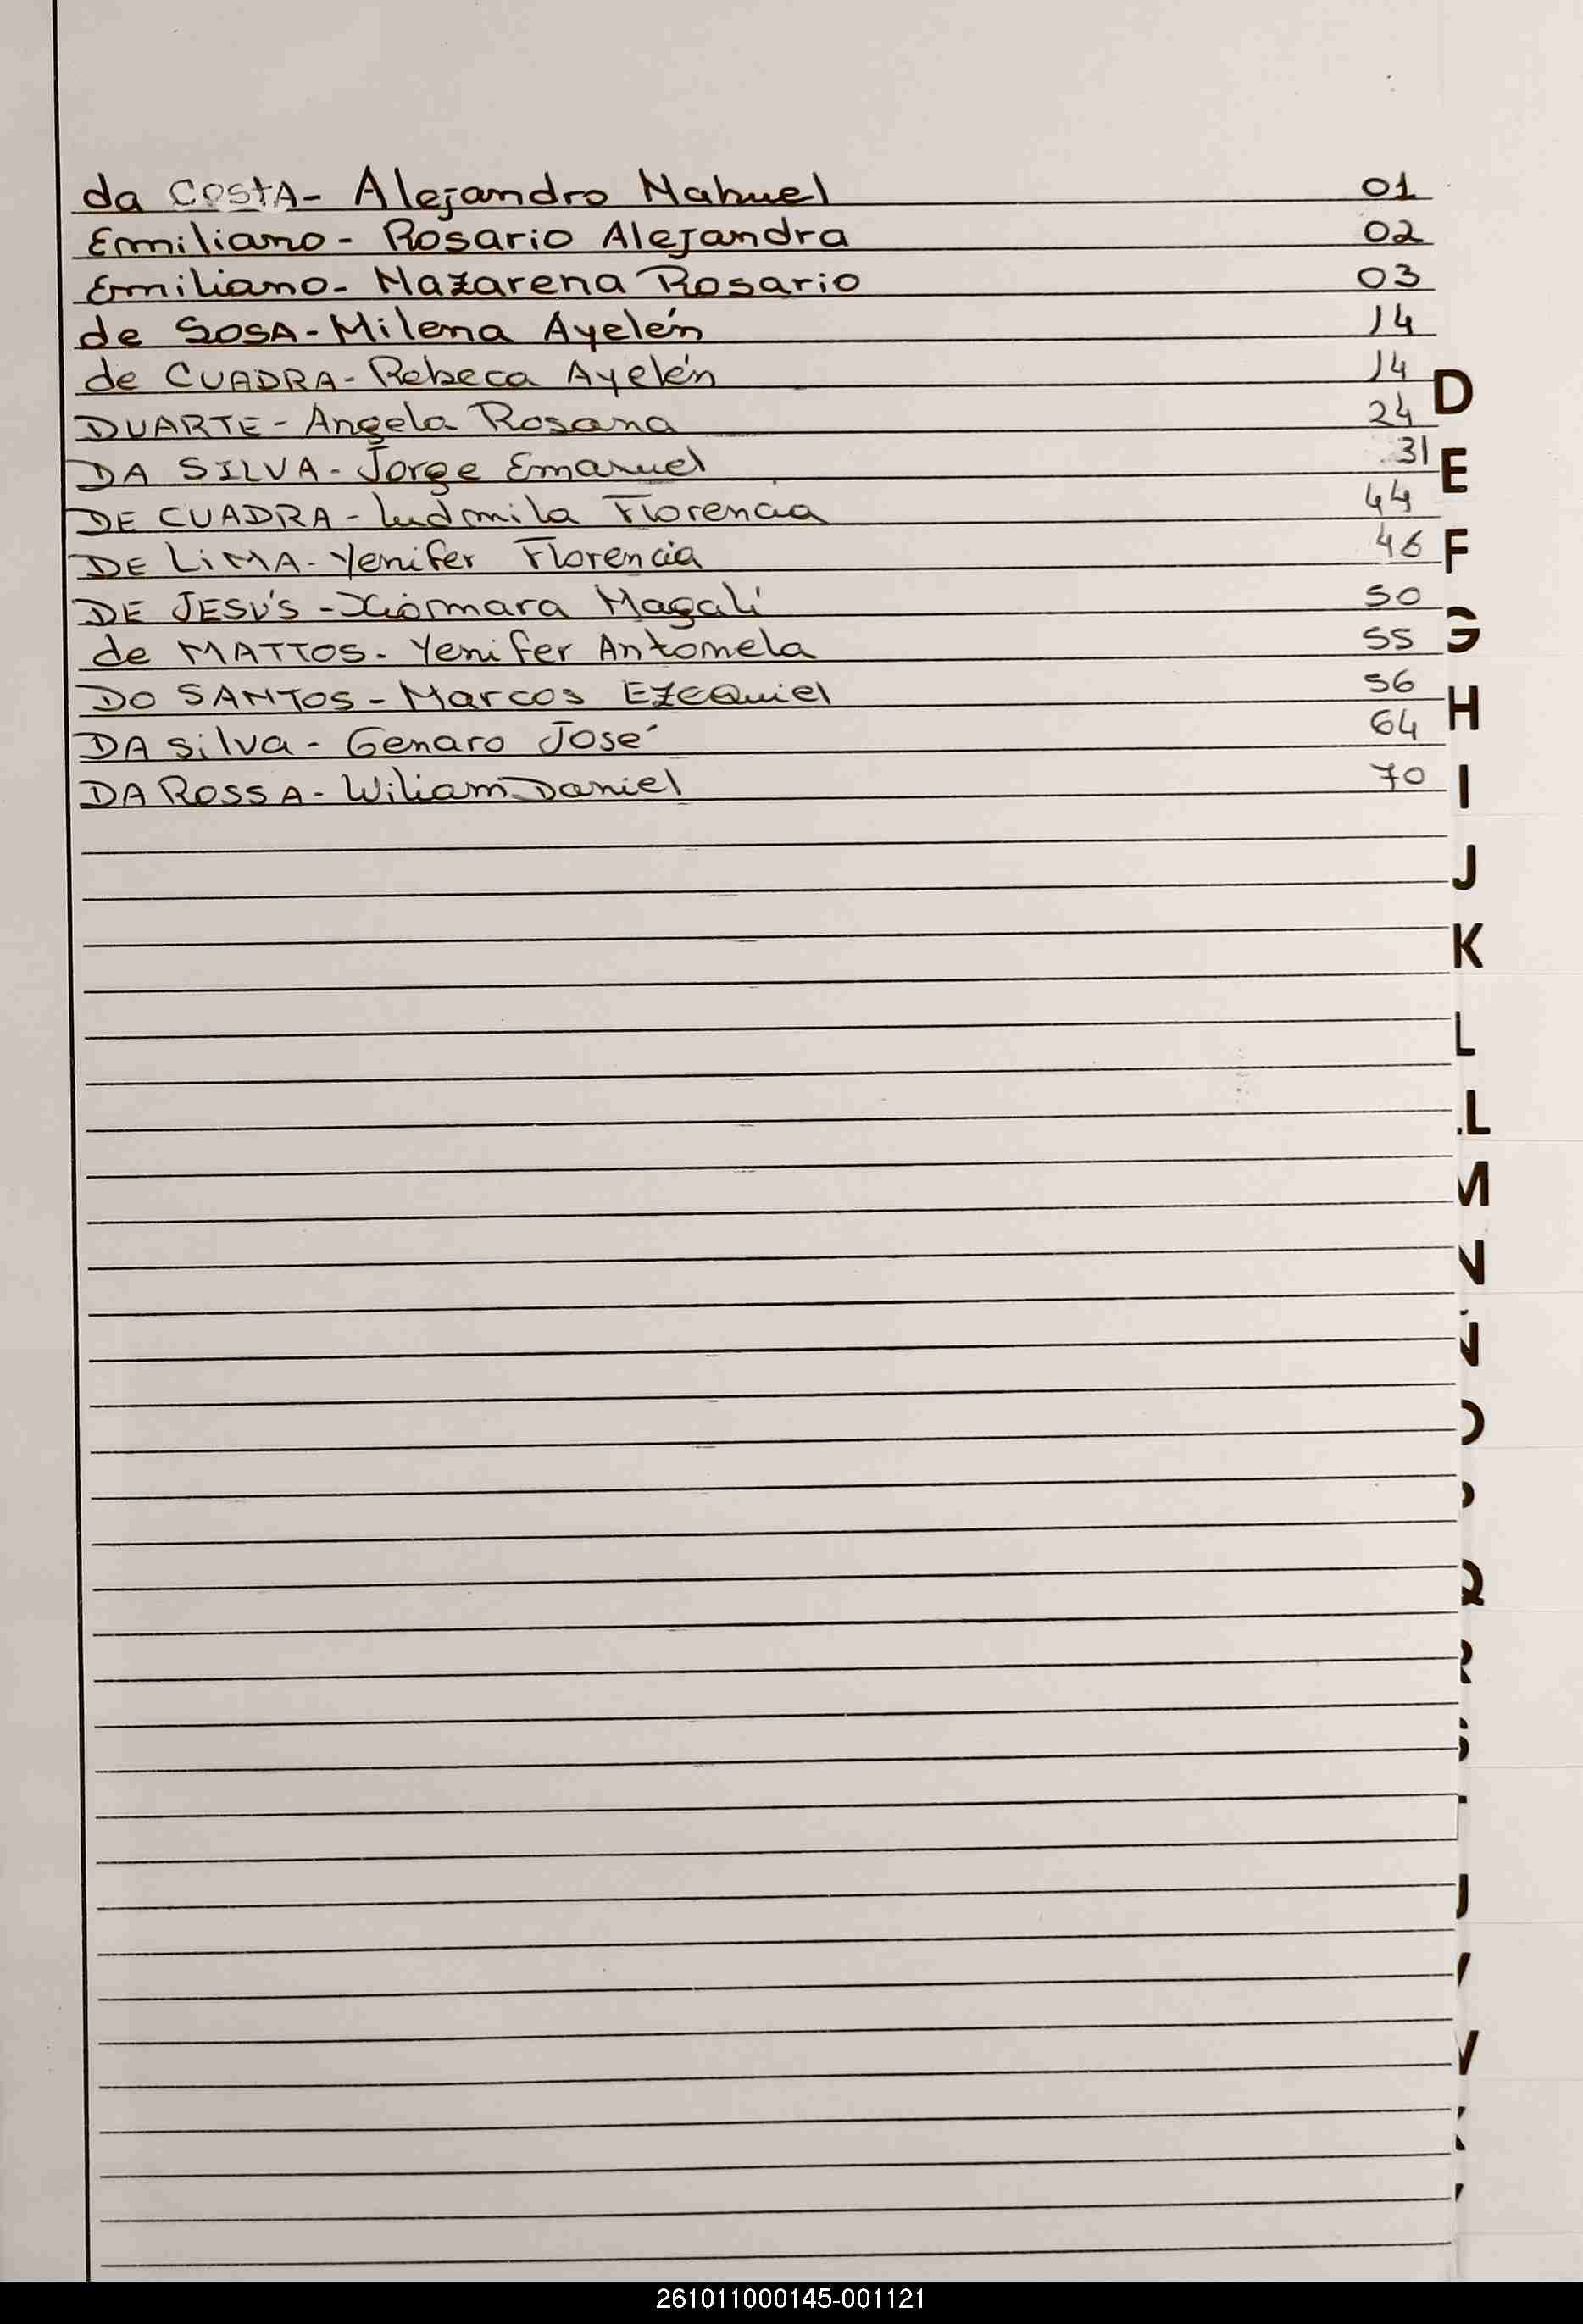 da COstA - Alejandro Nahuel 01
Emiliano - Rosario Alejandra 02
Emiliano - Nazarena Rosario 03
de SOSA - Milena Ayelén 14
de CUADRA - Rebeca Ayelén 14
DUARTE - Angela Rosana 24
DA SILVA - Jorge Emanuel 31
DE CUADRA - Ludmila Florencia 44
DE LiMA - Yenifer Florencia 46
DE JESÚS - Xiomara Magalí 50
de MATTOS - Yenifer Antonela 55
DO SANTOS - Marcos EZEQuiel 56
DA Silva - Genaro José 64
DA ROSSA - Wiliam Daniel 70
D
E
F
G
H
I
J
K
L
LL
M
N
Ñ
O
P
Q
R
S
T
U
V
W
X
Y
261011000145-001121